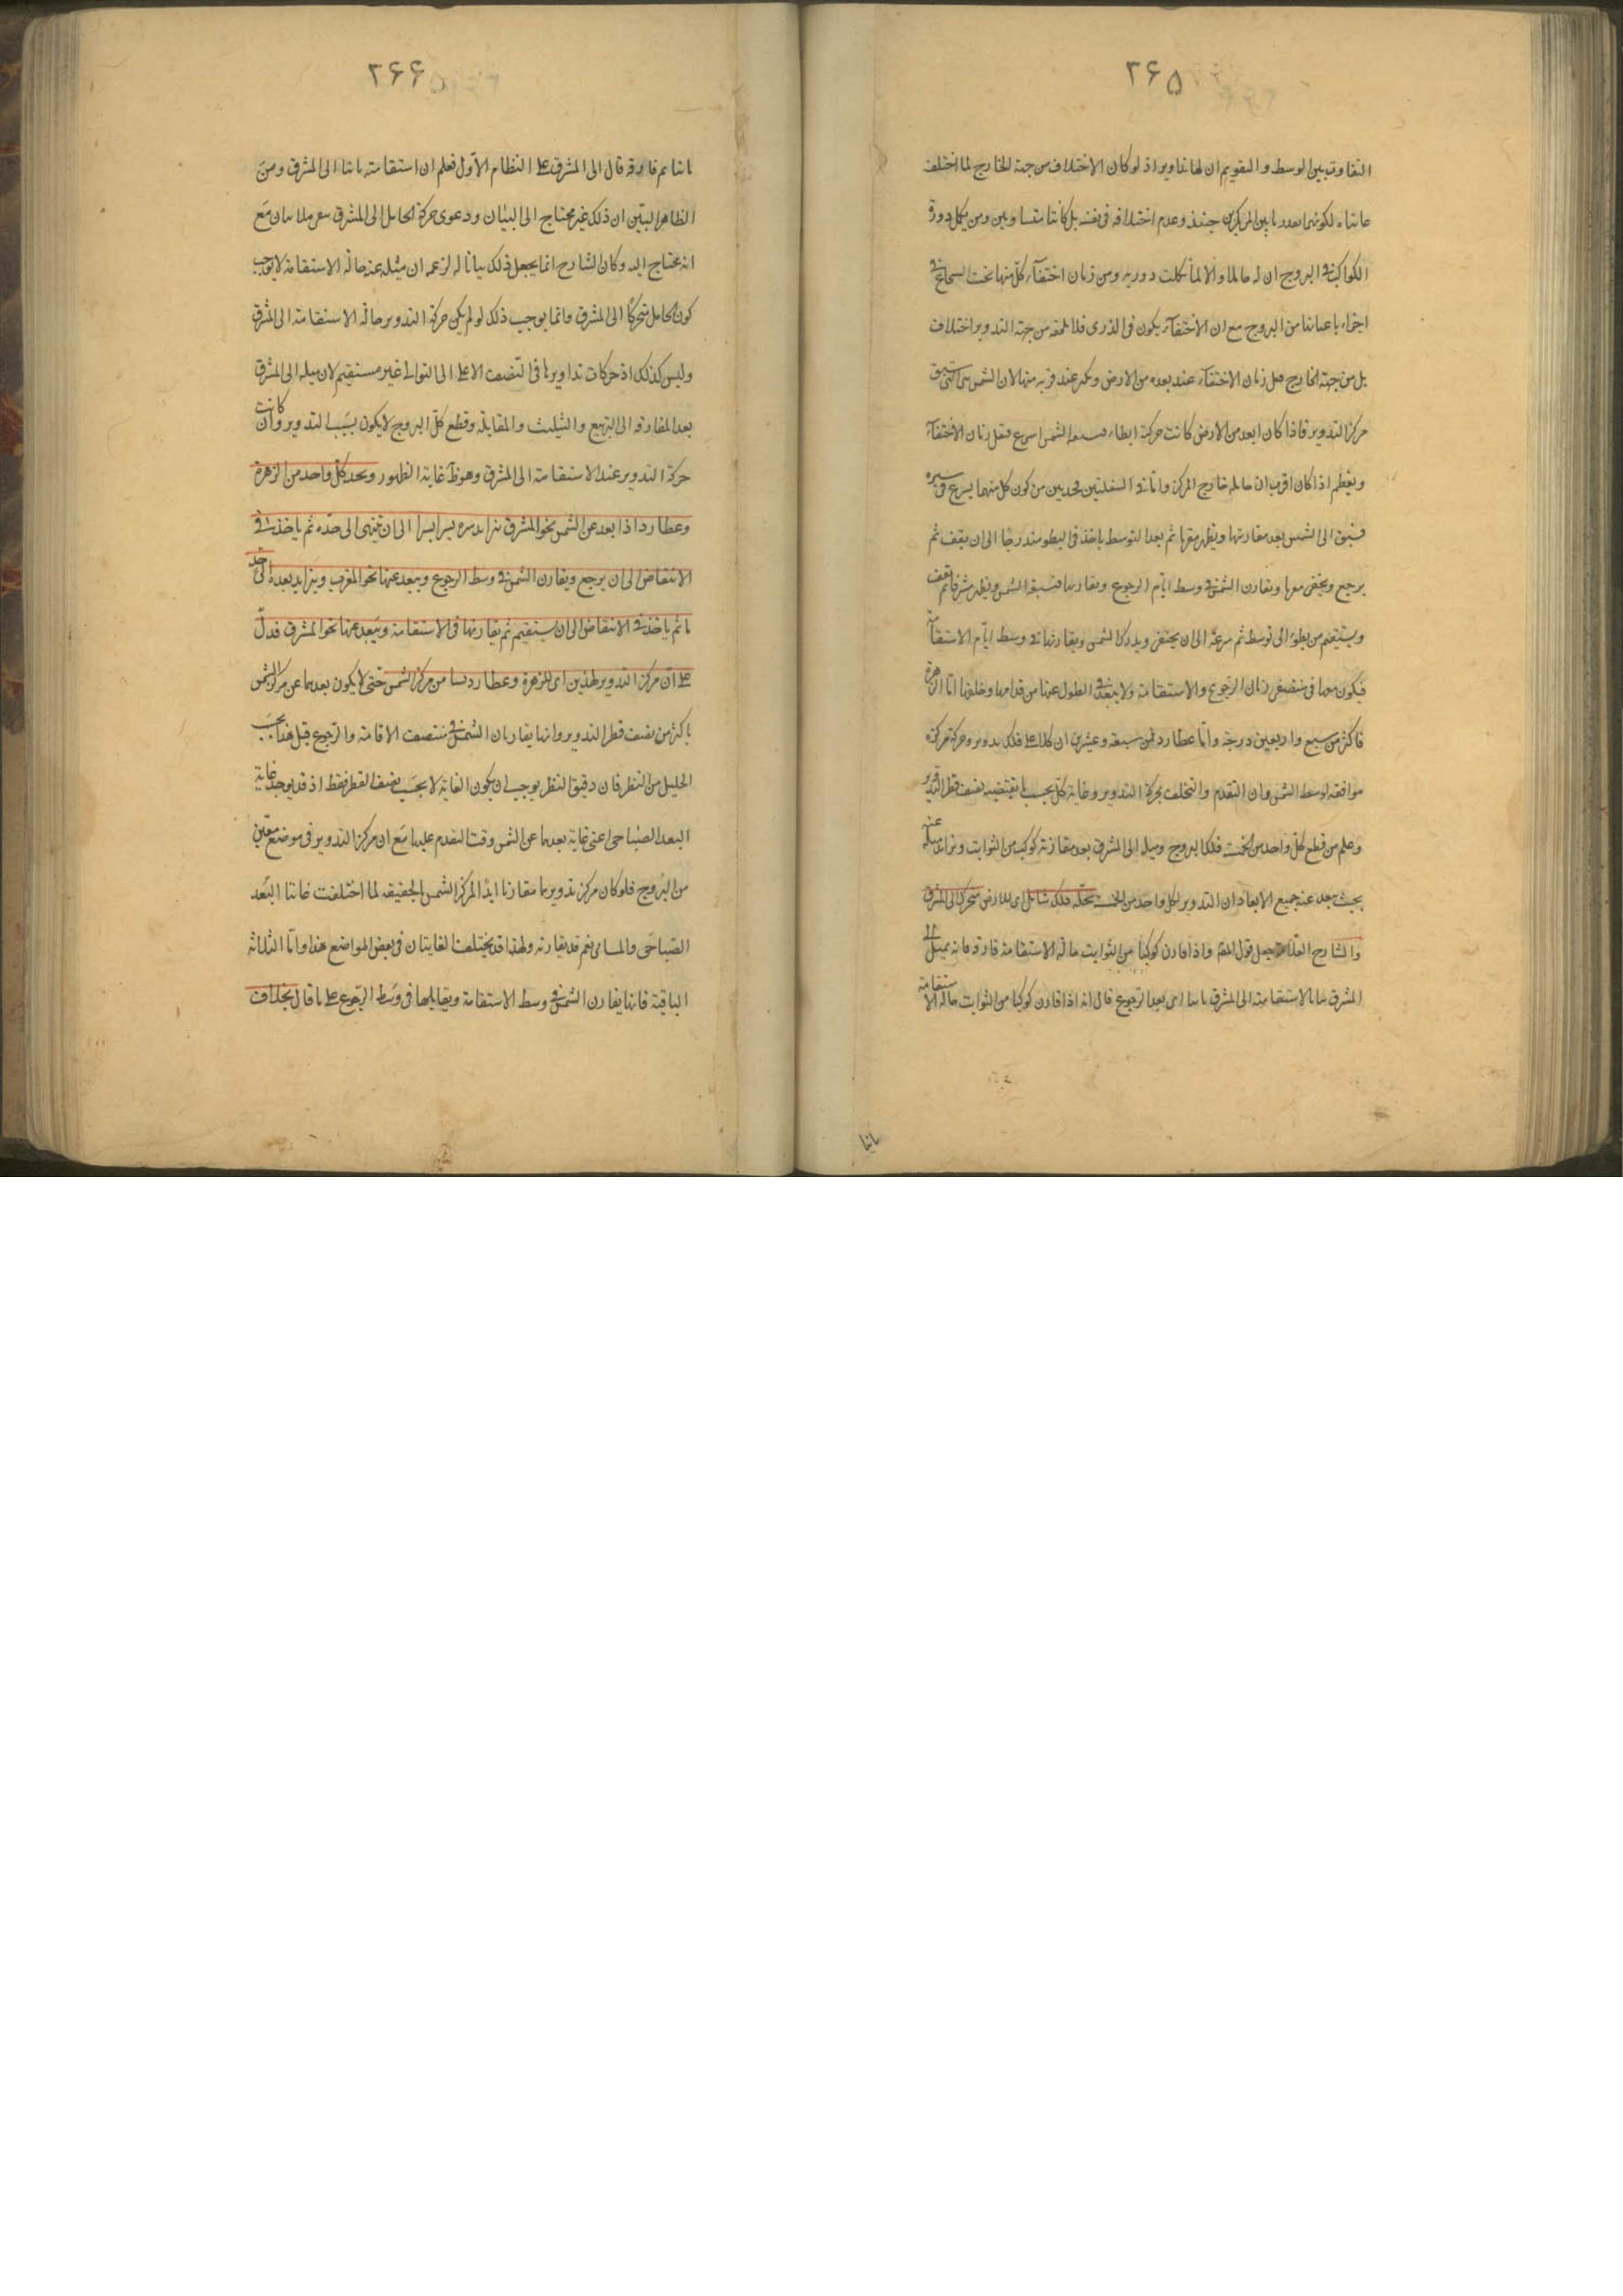 ٢۶۵
التفاوت بين الوسط والتقويم ان لها تداوير اذ لو كان الاختلاف من جهة الخارج لما اختلف
غايتاه لكونهما بعدد ما بين المركزين حينئذ وعدم اختلافه فى نفسه بل كانتا متساويين ومن تكل دورة
الكواكب فى البروج ان له حاملا والا لما تكلت دورية ومن زمان اختفاء كل منها تحت الشعاع فى
اجزاء باعيانها من البروج مع ان الاختفاء يكون فى الذرى فلا يلحقه من جهة التدوير اختلاف
بل من جهة الخارج فقل زمان الاختفاء عند بعده من الارض وكثر عند قربه منها لان الشمس
مركز التدوير فاذا كان ابعد من الارض كانت حركته ابطاء الشمس اسرع فقل زمان الاختفاء
ويعظم اذا كان اقرب ان حامله خارج المركز واما فى السفليتين فحدسين من كون كل منهما يسرع فى سيره
فيسبق الى الشمس بعد مقارنتها ويظهر مغربا ثم بعد التوسط ياخذ فى البطو متدرجا الى ان يقف ثم
يرجع ويختفى مغربا ويقارن الشمس فى وسط ايام الرجوع ويقاربها فتسبقه الشمس ويظهر مشرقا ثم يقف
ويستقيم من بطؤ الى توسط ثم سرعة الى ان يختفى ويدرك الشمس ويقارنها فى وسط ايام الاستقامة
فيكون معها فى منتصفى زمان الرجوع والاستقامة ولا يبعد فى الطول عنها من قدامها وخلفها اما الزهرة
فاكثر من سبع واربعين درجة واما عطارد فمن سبعة وعشرين ان لهما فلك تدوير وحركة مركزه
موافقة لوسط الشمس وان التقدم والتخلف بحركة التدوير وغاية كل بحسب ما يقتضيه نصف قطر التدوير
وعلم من قطع كل واحد من الخمسة فلك البروج وميله الى المشرق بعد مقارنة كوكب من الثوابت وتزايد ميله عنه
بحيث يبعد عنه جميع الابعاد ان التدوير لكل واحد من الخمسة يحمله فلك شامل اى للارض متحرك الى المشرق
والشارح العلامة جعل قول المصنف واذا قارن كوكبا من الثوابت حالة الاستقامة فارقه فانه يميل الى
المشرق بيانا لاستقامته الى المشرق ثانيا اى بعد الرجوع قال انه اذا قارن كوكبا من الثوابت حالة الاستقامة
ثانيا
٢۶۶
ثانيا ثم فارقه قال الى المشرق على النظام الاول فعلم ان استقامته ثانيا الى المشرق ومن
الظاهر البين ان ذلك غير محتاج الى البيان ودعوى حركة الحامل الى المشرق بلا بيان مع
انه يحتاج اليه وكان الشارح انما يجعل ذلك بيانا له لزعمه ان ميله عنه حالة الاستقامة لا يوجب
كون الحامل متحركا الى المشرق وانما يوجب ذلك لو لم يكن حركة التدوير حالة الاستقامة الى المشرق
وليس كذلك اذ حركات تداويرها فى النصف الاعلى الى التوالى غير مستقيم لان ميله الى المشرق
بعد المفارقة الى التربيع والتثليث والمقابلة وقطع كل البروج لا يكون بسبب التدوير وان كانت
حركة التدوير عند الاستقامة الى المشرق وهو فى غاية الظهور ويجد كل واحد من الزهرة
وعطارد اذا بعد عن الشمس نحو المشرق تزايد سيره يسيرا يسيرا الى ان ينتهى الى حده ثم ياخذ فى
الانتقاص الى ان يرجع ويقارن الشمس فى وسط الرجوع ويبعد عنها نحو المغرب ويتزايد بعده الى حد
ما ثم ياخذ فى الانتقاص الى ان يستقيم ثم يقارنها فى الاستقامة ويبعد عنها نحو المشرق فدل
على ان مركز التدوير لهذين اى للزهرة وعطارد من مركز الشمس حتى لا يكون بعدهما عن مركز الشمس
باكثر من نصف قطر التدوير وانها يقارنان الشمس فى منتصف الاقامة والرجوع قيل هذا بحسب
الجليل من النظر فان دقيق النظر يوجب ان يكون الغاية لا بحسب نصف القطر فقط اذ قد يوجد غاية
البعد الصباحى اعنى غاية بعدها عن الشمس وقت التقدم عليها مع ان مركز التدوير فى موضع معين
من البروج فلو كان مركز تدويرها مقارنا ابدا لمركز الشمس بالحقيقة لما اختلفت غايتا البعد
الصباحى والمسائى نعم قد يقارنه ولهذا قد يختلف الغايتان فى بعض المواضع هذا واما الثلاثة
الباقية فانها يقارن الشمس فى وسط الاستقامة ويقابلها فى وسط الرجوع على ما قال بخلاف